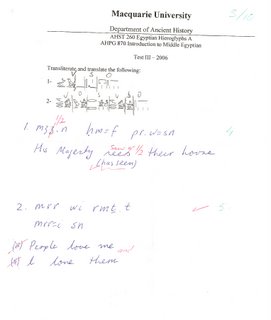 Macquarie University
5/10
Department of Ancient History
AHST 260 Egyptian Hieroglyphs A
AHPG 870 Introduction to Middle Egyptian
Test III - 2006
Transliterate and translate the following:
V S O
1-
V S O V S O
2-
1/2
1. .n ḥm=f pr.w=sn 4
His Majesty 1/2 their house
(has seen)
2. mrr wi rmṯ t 5
mrr=i sn
People love me and
I love them